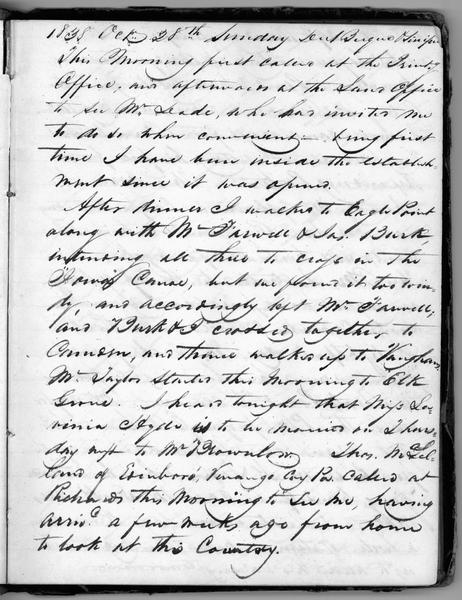 1838 Oct. 28th Sunday
This Morning first called at the Printg
Office, and afterwards at the Land Office
to see Mr. Leade, who has invited me
to do so when convenient – being first
time I have been inside the establish-
ment since it was opened.
After dinner I walked to Eagle Point
along with Mr Farwell & Jas. Burk,
intending all three to cross in the
Canoe, but we found it too win-
dy, and accordingly left Mr. Farwell,
and Burk & I crossed together to
and thence walked up to
Mr. Taylor started this Morning to Elk
Grove. I heard tonight that Miss Lo-
vinia Hyde is to be married on Thurs-
day next to Mr Thos. McLel-
land of Edinboro', Venango Coy Pa. called at
this Morning to see me, having
arrivd a few weeks ago from home
to look at this Country.